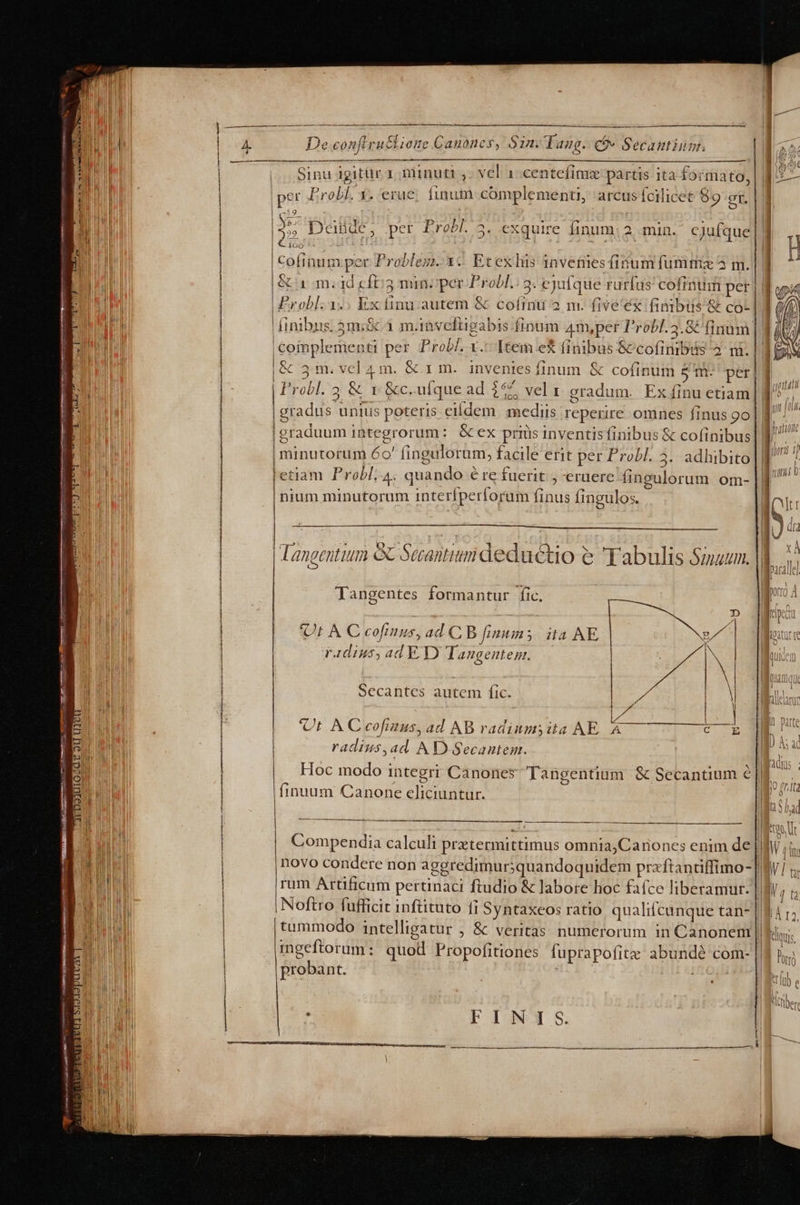 4 De conſtructione Canones, Sin. Tang. & Secantium.
Sinu igitur 1 minuti, vel 1 centeſimæ partis ita formato,
per Probl. 1. erue, ſinum complementi, arcus ſcilicet 89 gr.
Deinde, per Probl. 3. exquire ſinum 2 min. ejuſque
coſinum per Problem. 1. Et ex his invenies ſinum ſummæ 2 m.
& 1 m. id eſt 3 min. per Probl. 3. ejuſque rurſus coſinum per
Probl. 1. Ex ſinu autem & coſinu 2 m. ſive ex ſinibus & co-
ſinibus 3m. & 1 m. inveſtigabis ſinum 4m, per Probl. 3. & ſinum
complementi per Probl. 1. Item ex ſinibus & coſinibus 2 m.
& 3 m. vel 4 m. & 1 m. invenies ſinum & coſinum 5 m. per
Probl. 3 & 1 &c. uſque ad vel 1 gradum. Ex ſinu etiam
gradus unius poteris eiſdem mediis reperire omnes ſinus 90
graduum integrorum: & ex priùs inventis ſinibus & coſinibus
minutorum 60' ſingulorum, facile erit per Probl. 3. adhibito
etiam Probl. 4. quando è re fuerit, eruere ſingulorum om-
nium minutorum interſperſorum ſinus ſingulos.
Tangentium & Secantium deductio è Tabulis Sinuum.
Tangentes formantur ſic.
Ut A C coſinus, ad C B ſinum; ita AE
radius, ad E D Tangentem.
Secantes autem ſic.
Ut A C coſinus, ad AB radium; ita AE
radius, ad A D Secantem.
D
B
A C E
Hoc modo integri Canones Tangentium & Secantium è
ſinuum Canone eliciuntur.
Compendia calculi prætermittimus omnia; Canones enim de
novo condere non aggredimur; quandoquidem præſtantiſſimo-
rum Artificum pertinaci ſtudio & labore hoc faſce liberamur.
Noſtro ſufficit inſtituto ſi Syntaxeos ratio qualiſcunque tan-
tummodo intelligatur, & veritas numerorum in Canonem
ingeſtorum: quod Propoſitiones ſuprapoſitæ abundè com-
probant.
FINIS.